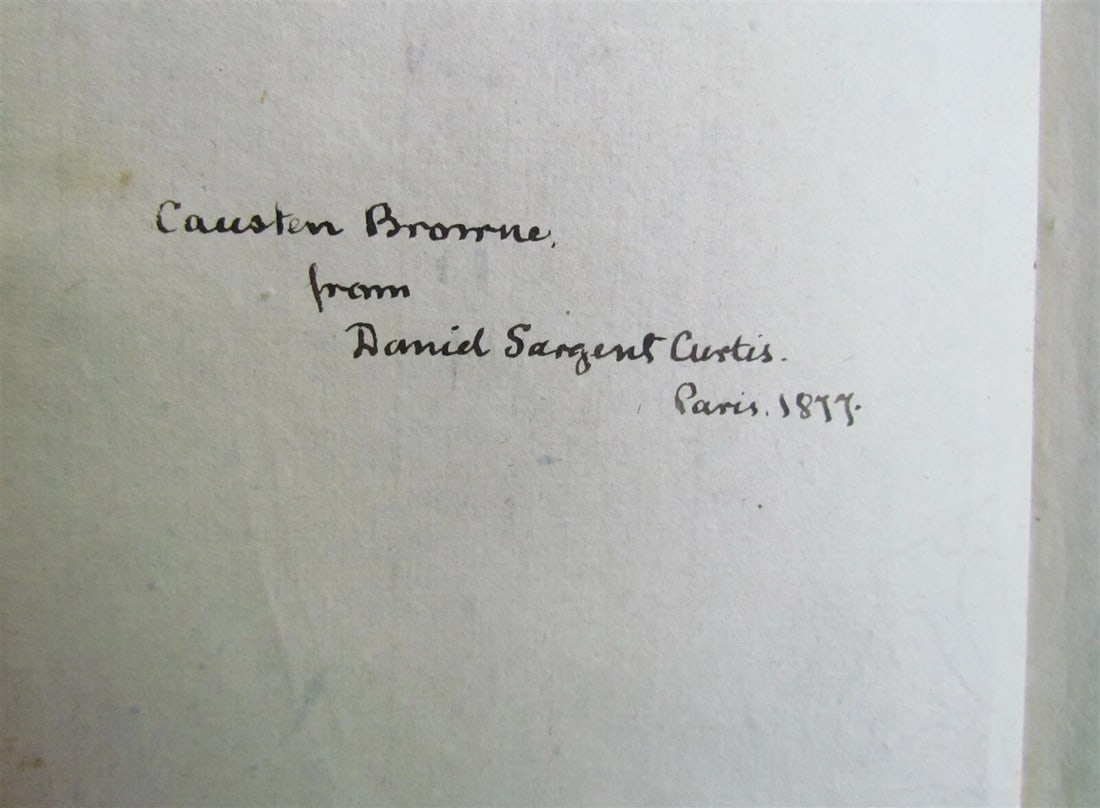 Causten Browne,
from
Daniel Sargent Curtis.
Paris. 1877.